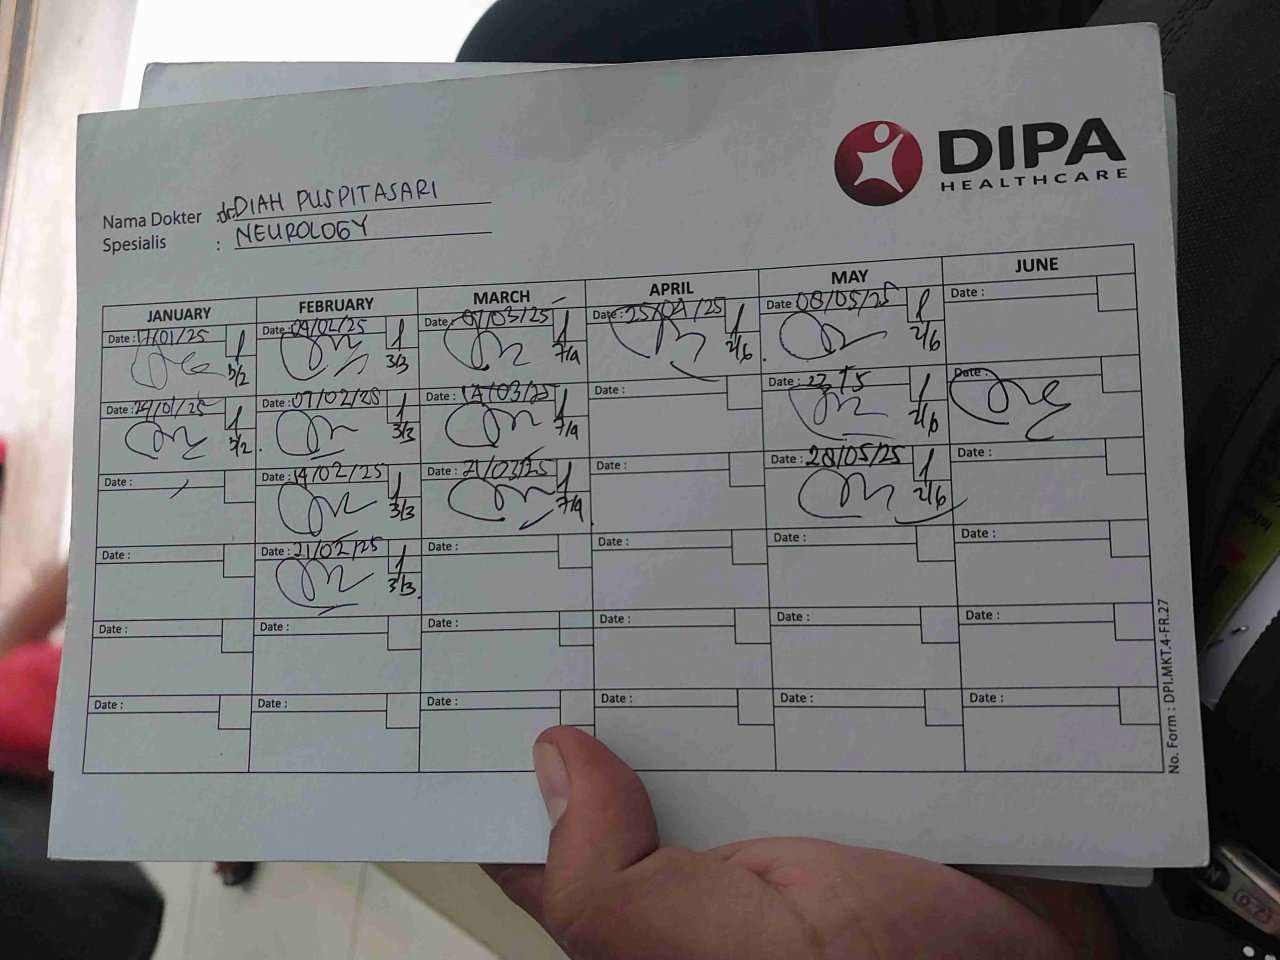 DIPA
HEALTHCARE
Nama Dokter : dr DIAH PUSPITASARI
Spesialis : NEUROLOGY
JANUARY FEBRUARY MARCH APRIL MAY JUNE
Date : 17/01/25 3/2 Date : 04/02/25 3/3 Date : 07/03/25 7/4 Date : 25/04/25 2/6 Date : 08/05/25 2/6 Date :
Date : 24/01/25 3/2 Date : 07/02/25 3/3 Date : 14/03/25 7/4 Date : Date : 23 2/6 Date :
Date : Date : 14/02/25 3/3 Date : 21/03/25 7/4 Date : Date : 28/05/25 2/6 Date :
Date : Date : 21/02/25 3/3 Date : Date : Date : Date :
Date : Date : Date : Date : Date : Date :
Date : Date : Date : Date : Date : Date :
No. Form : DPI.MKT.4-FR.27